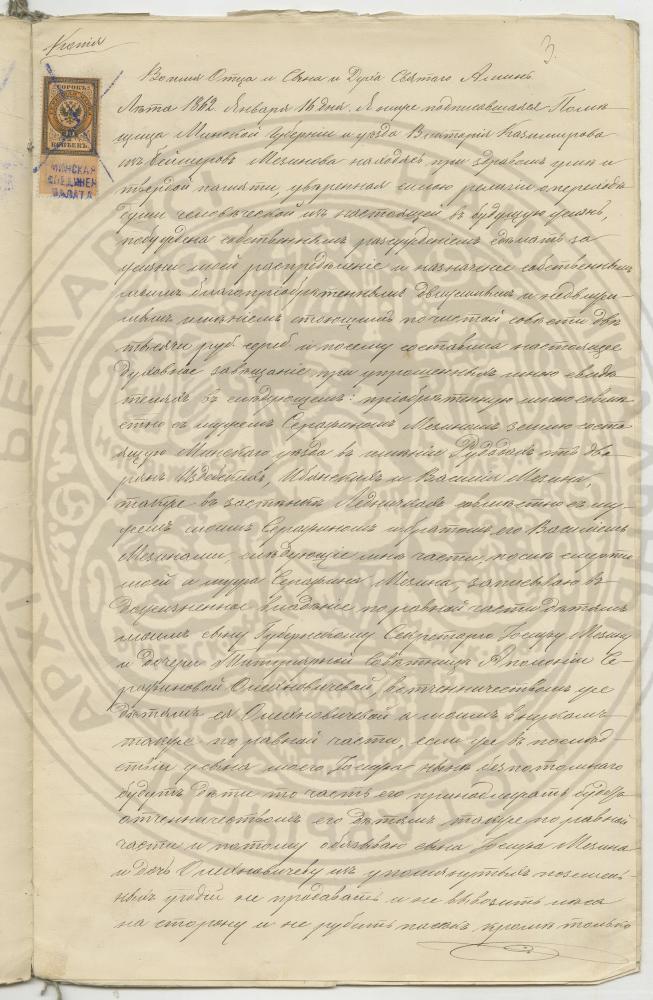 Копія
3.
Во имя Отца и Сына и Духа Святаго Аминь
Лѣта 1862. Января 16 дня. Я ниже подписавшаяся Помѣ-
щица Минской Губерніи и уѣзда Викторія Казимирова
изъ Мезинова находясь при здравомъ умѣ и
твердой памяти, увѣренная мною религіи о переходѣ
души человеческой изъ настоящей въ будущую жизнь,
побуждена собственнымъ разсужденіемъ сдѣлать за
жизни моей распредѣленіе и назначеніе собственнымъ
моимъ благопріобрѣтеннымъ движимымъ и недвижи-
мымъ имѣніемъ стоющимъ по чистой совѣсти двѣ
тысячи руб сереб и посему составила настоящее
духовное завѣщаніе при упрошенныхъ мною свидѣ-
теляхъ въ слѣдующемъ: пріобрѣтенную мною совмѣ-
стно съ мужемъ Серафиномъ Мезиномъ землю состо-
ящую Минскаго уѣзда въ имѣніи отъ дво-
рянъ и Василія Мезина,
также въ застѣнкѣ совмѣстно съ му-
жемъ моимъ Серафиномъ и братомъ его Василіемъ
Мезинами, слѣдующіе мнѣ части, послѣ смерти
моей и мужа Серафина Мезина, записываю въ
пожизненное владѣніе по равной части дѣтямъ
моимъ сыну Губернскому Секретарю Госифу Мезину
и дочери Титулярной Совѣтницѣ Аполоніи Се-
рафиновой Олехновичевой, вотченничествомъ уже
дѣтямъ ея Олехновичевой а моимъ внукамъ
также по равной части, если же въ послѣд-
ствіи у сына моего нынѣ безпотомнаго
будутъ дѣти то часть его принадлежать будетъ
отченничествомъ его дѣтямъ также по равной
части и потому обязываю сына Мезина
и дочь Олехновичеву изъ упомянутыхъ поземель-
ныхъ угодій не продавать и не вывозить лѣса
на сторону и не рубить пасѣкъ кромѣ только
СОРОКЪ
40
КОПѢЕКЪ
МИНСКАЯ
СОЕДИНЕН
ПАЛАТА